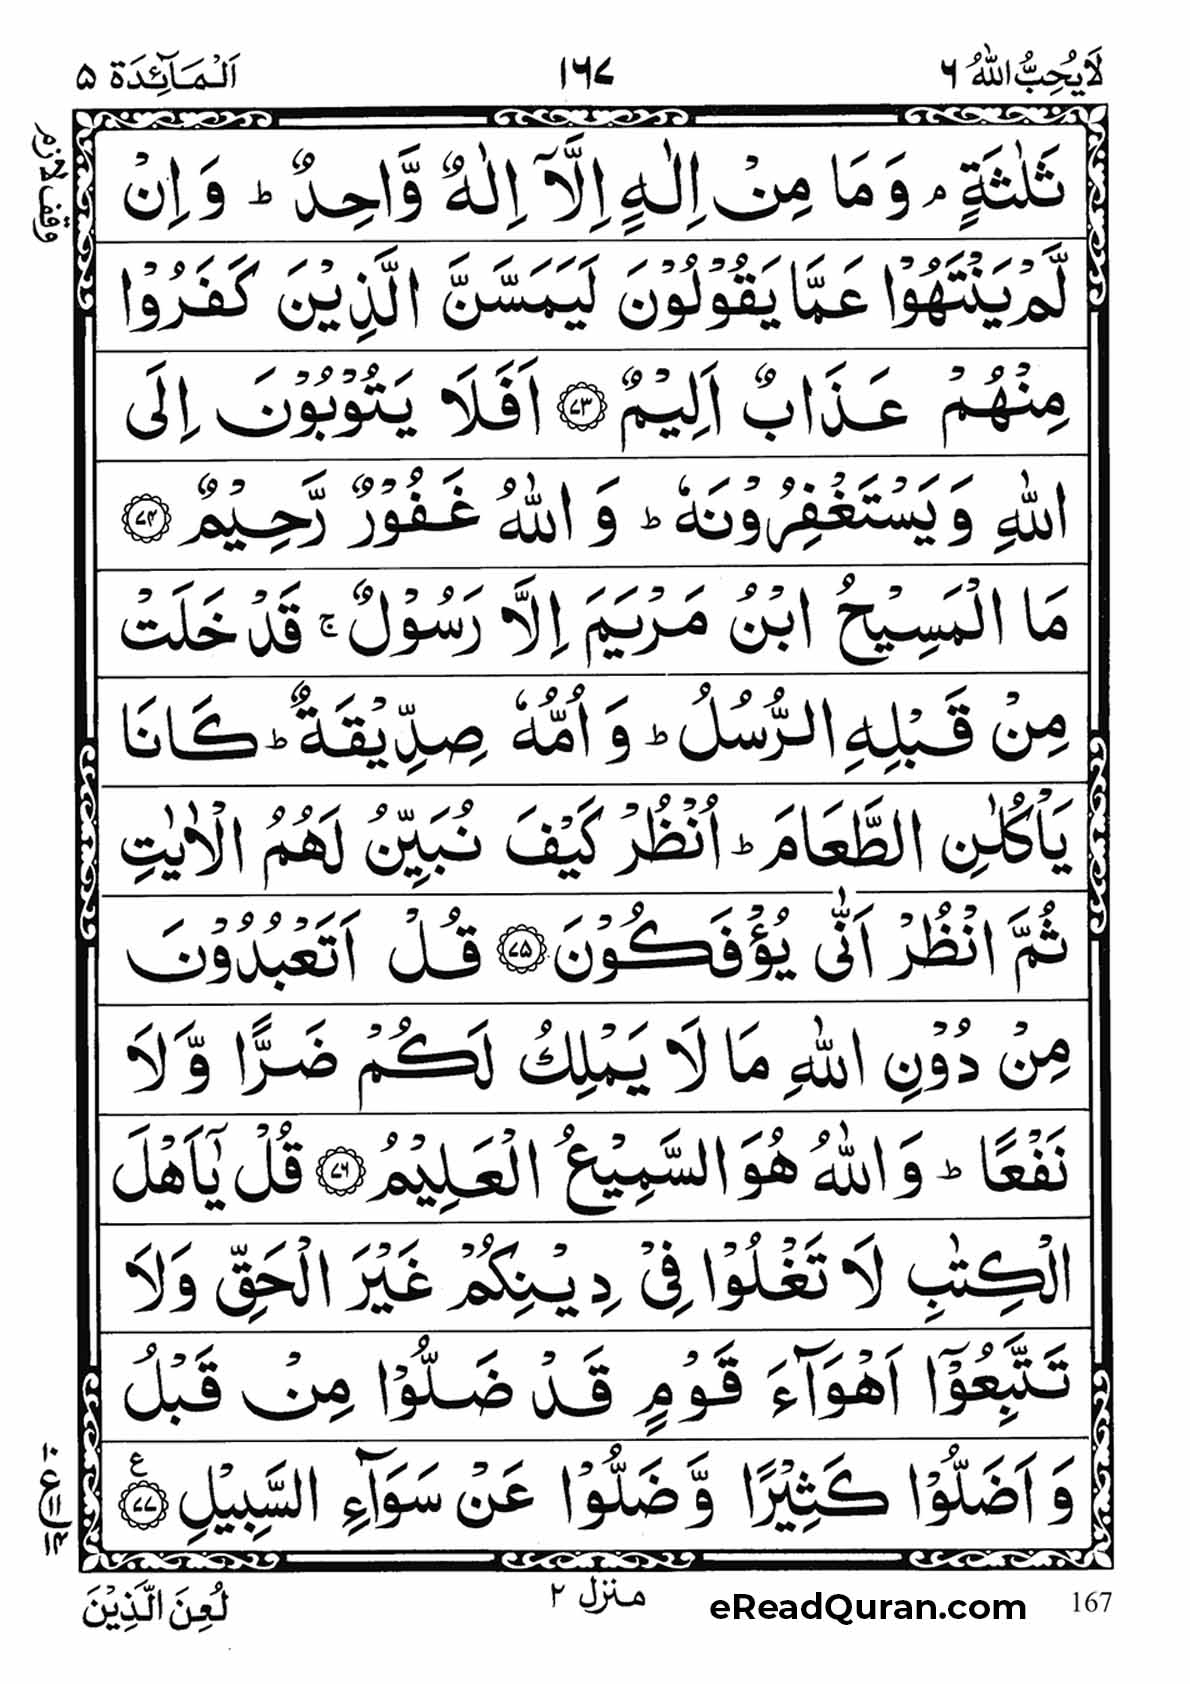 لَا يُحِبُّ اللّٰهُ ٦
١٦٧
اَلْمَآئِدَة ٥
وقف لازم
ثَلٰثَةٍ ۘ وَ مَا مِنْ اِلٰهٍ اِلَّاۤ اِلٰهٌ وَّاحِدٌ ؕ وَ اِنْ
لَّمْ يَنْتَهُوْا عَمَّا يَقُوْلُوْنَ لَيَمَسَّنَّ الَّذِيْنَ كَفَرُوْا
مِنْهُمْ عَذَابٌ اَلِيْمٌ ۝٧٣ اَفَلَا يَتُوْبُوْنَ اِلَى
اللّٰهِ وَ يَسْتَغْفِرُوْنَهٗ ؕ وَ اللّٰهُ غَفُوْرٌ رَّحِيْمٌ ۝٧٤
مَا الْمَسِيْحُ ابْنُ مَرْيَمَ اِلَّا رَسُوْلٌ ۚ قَدْ خَلَتْ
مِنْ قَبْلِهِ الرُّسُلُ ؕ وَ اُمُّهٗ صِدِّيْقَةٌ ؕ كَانَا
يَاْكُلٰنِ الطَّعَامَ ؕ اُنْظُرْ كَيْفَ نُبَيِّنُ لَهُمُ الْاٰيٰتِ
ثُمَّ انْظُرْ اَنّٰى يُؤْفَكُوْنَ ۝٧٥ قُلْ اَتَعْبُدُوْنَ
مِنْ دُوْنِ اللّٰهِ مَا لَا يَمْلِكُ لَكُمْ ضَرًّا وَّ لَا
نَفْعًا ؕ وَ اللّٰهُ هُوَ السَّمِيْعُ الْعَلِيْمُ ۝٧٦ قُلْ يٰۤاَهْلَ
الْكِتٰبِ لَا تَغْلُوْا فِيْ دِيْنِكُمْ غَيْرَ الْحَقِّ وَ لَا
تَتَّبِعُوْۤا اَهْوَآءَ قَوْمٍ قَدْ ضَلُّوْا مِنْ قَبْلُ
وَ اَضَلُّوْا كَثِيْرًا وَّ ضَلُّوْا عَنْ سَوَآءِ السَّبِيْلِ ۝٧٧ ع
١٠ ع ١١ ١٤
لُعِنَ الَّذِيْنَ
منزل ٢
eReadQuran.com
167